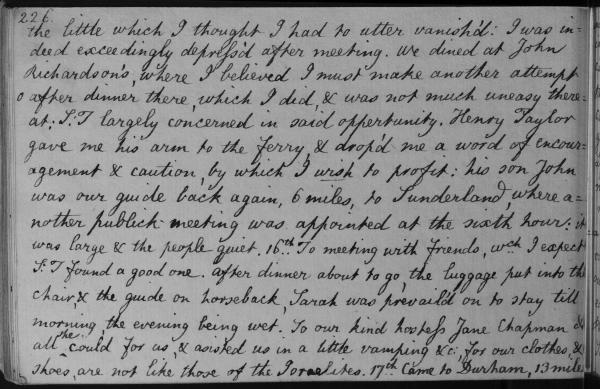 226.
the little which I thought I had to utter vanish'd: I was in=
deed exceedingly depress'd after meeting. We dined at John
Richardson's, where I believed I must make another attempt
after dinner there, which I did, & was not much uneasy there=
at: S.T largely concerned in said oppertunity. Henry Taylor
gave me his arm to the ferry & drop'd me a word of encour=
agement & caution, by which I wish to profit: his son John
was our guide back again, 6 miles, to Sunderland, where a=
nother publick meeting was appointed at the sixth hour: it
was large & the people quiet. 16th To meeting with friends, wch I expect
S:T found a good one. After dinner about to go, the luggage put into the
chair, & the guide on horseback, Sarah was prevail'd on to stay till
morning the evening being wet. To our kind hostess Jane Chapman &
all she could for us, & asisted us in a little vamping &c: for our clothes, &
shoes, are not like those of the Israelites. 17th Came to Durham, 13 miles